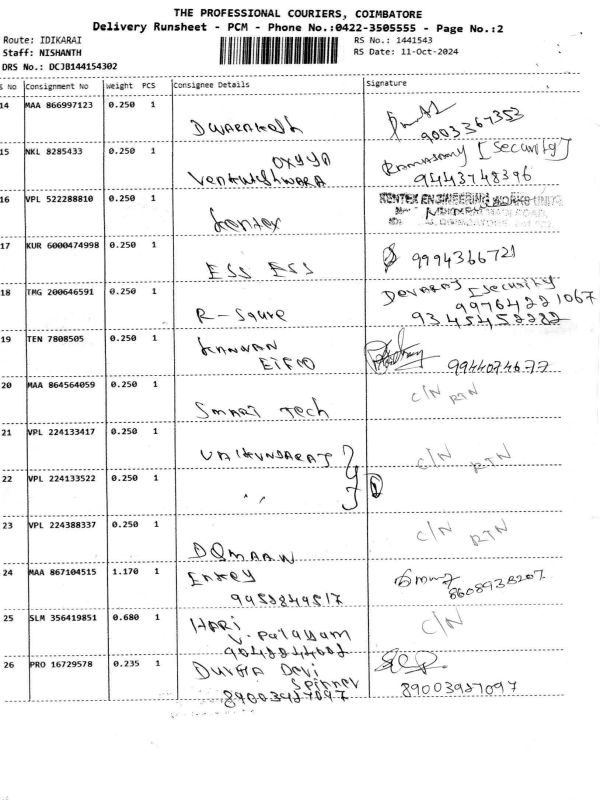 THE PROFESSIONAL COURIERS, COIMBATORE
Delivery Runsheet - PCM - Phone No.:0422-3505555 - Page No.:2
Route: IDIKARAI
RS No.: 1441543
Staff: NISHANTH
RS Date: 11-Oct-2024
DRS No.: DCJB144154302
S No Consignment No Weight PCS Consignee Details Signature
14 MAA 866997123 0.250 1
9003367353
15 NKL 8285433 0.250 1
Ramasamy [Security]
9443748396
16 VPL 522288810 0.250 1 Kentex
KENTEX ENGINEERING WORKS
17 KUR 6000474998 0.250 1 ESS ESS 9994366721
18 TMG 200646591 0.250 1 R-Squre
Devaraj [security
9976422 1067
19 TEN 7808505 0.250 1 Kannan
20 MAA 864564059 0.250 1 Smart Tech C/N RTN
21 VPL 224133417 0.250 1 C/N RTN
22 VPL 224133522 0.250 1 ,,
23 VPL 224388337 0.250 1 C/N RTN
24 MAA 867104515 1.170 1 Enkey
8608938207
25 SLM 356419851 0.680 1 Hari C/N
V. Palayam
26 PRO 16729578 0.235 1 Durga Devi
89003987097 89003987097